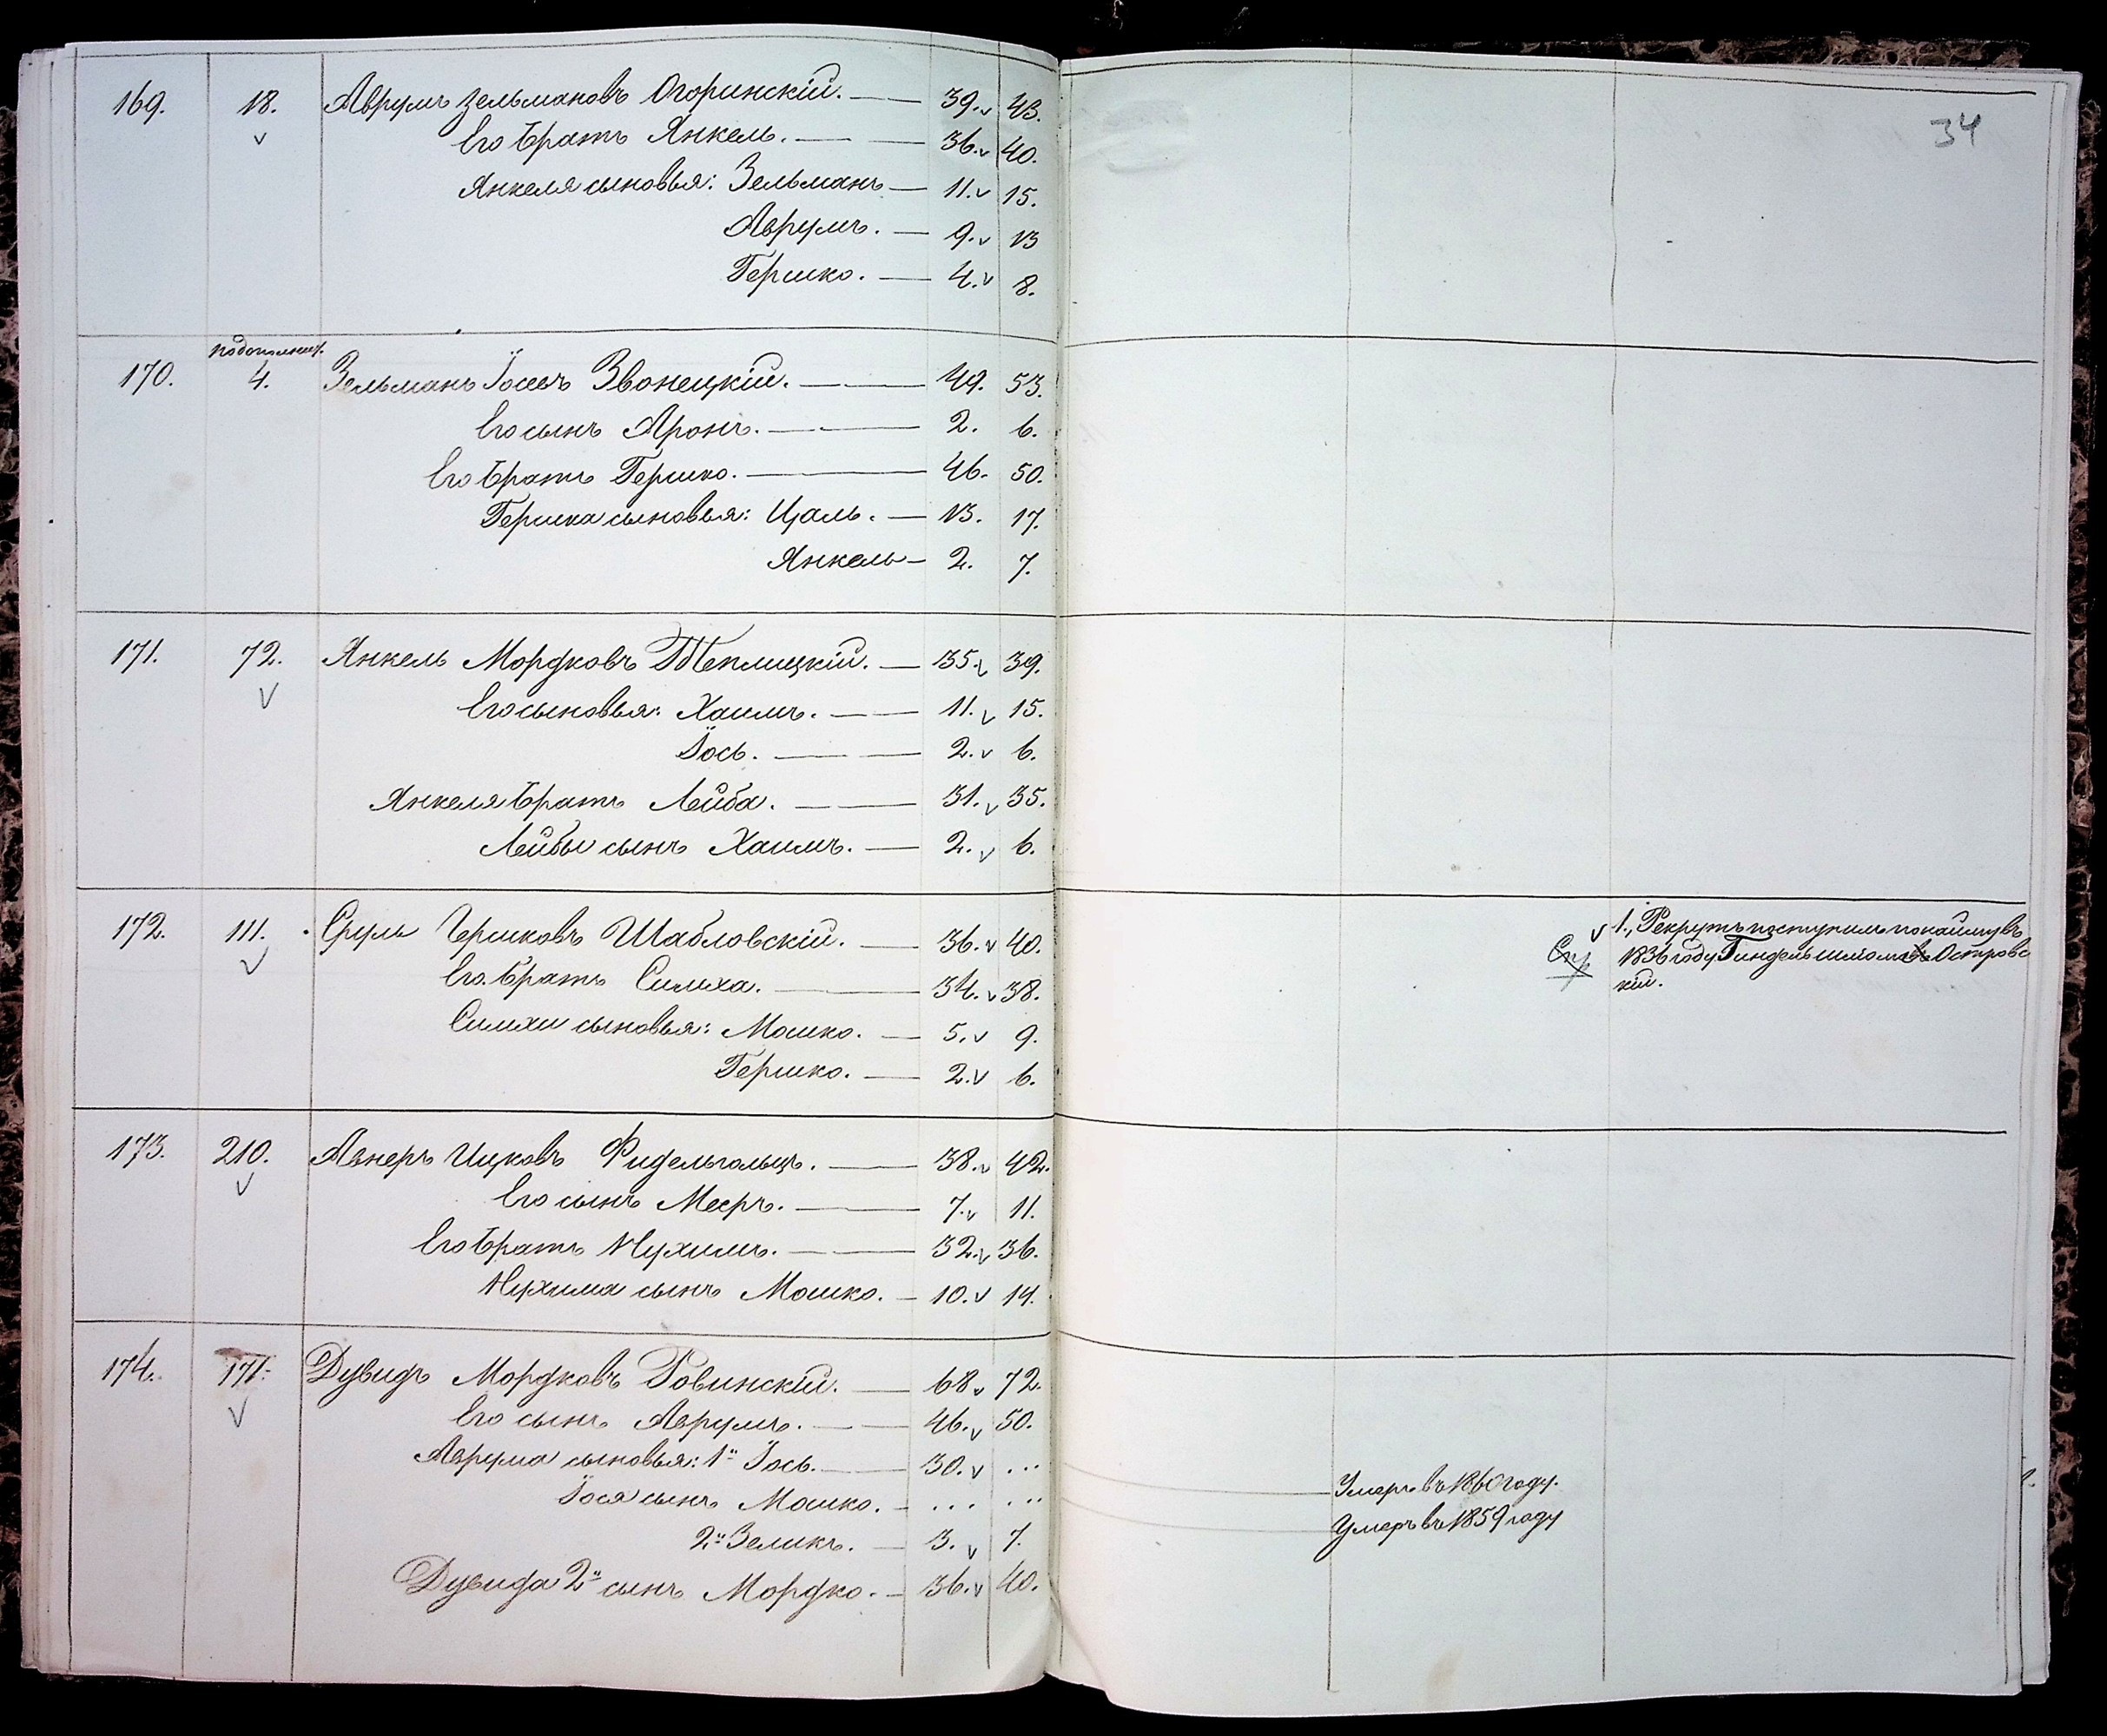 34
169. 18. Аврумъ Зельмановъ Огоринскій. 39. 43.
Его братъ Янкель. 36. 40.
Янкеля сыновья: Зельманъ 11. 15.
Аврумъ. 9. 13
Гершко. 4. 8.
170. 4. Зельманъ Іосевъ Звонецкій. 49. 53.
Его сынъ Аронъ. 2. 6.
Его братъ Гершко. 46. 50.
Гершка сыновья: Цаль. 13. 17.
Янкель 2. 7.
171. 72. Янкель Мордковъ Теплицкій. 35. 39.
Его сыновья: Хаимъ. 11. 15.
Іось. 2. 6.
Янкеля братъ Лейба. 31. 35.
Лейбы сынъ Хаимъ. 2. 6.
172. 111. Сруль Гершковъ Шабловскій. 36. 40.
Его братъ Симха. 34. 38.
Симхи сыновья: Мошко. 5. 9.
Гершко. 2. 6.
1., Рекрутъ поступилъ по найму въ
1836 году Гиндель Островс
кій.
173. 210. Авнеръ Ицковъ Фидельгольцъ. 38. 42.
Его сынъ Мееръ. 7. 11.
Его братъ Нухимъ. 32. 36.
Нухима сынъ Мошко. 10. 14.
174. 171. Дувидъ Мордковъ Ровинскій. 68. 72.
Его сынъ Аврумъ. 46. 50.
Аврума сыновья: 1й Іось. 30. ... Умеръ въ 1860 году.
Іося сынъ Мошко. ... ... Умеръ въ 1859 году
2й Зеликъ. 3. 7.
Дувида 2й сынъ Мордко. 36. 40.